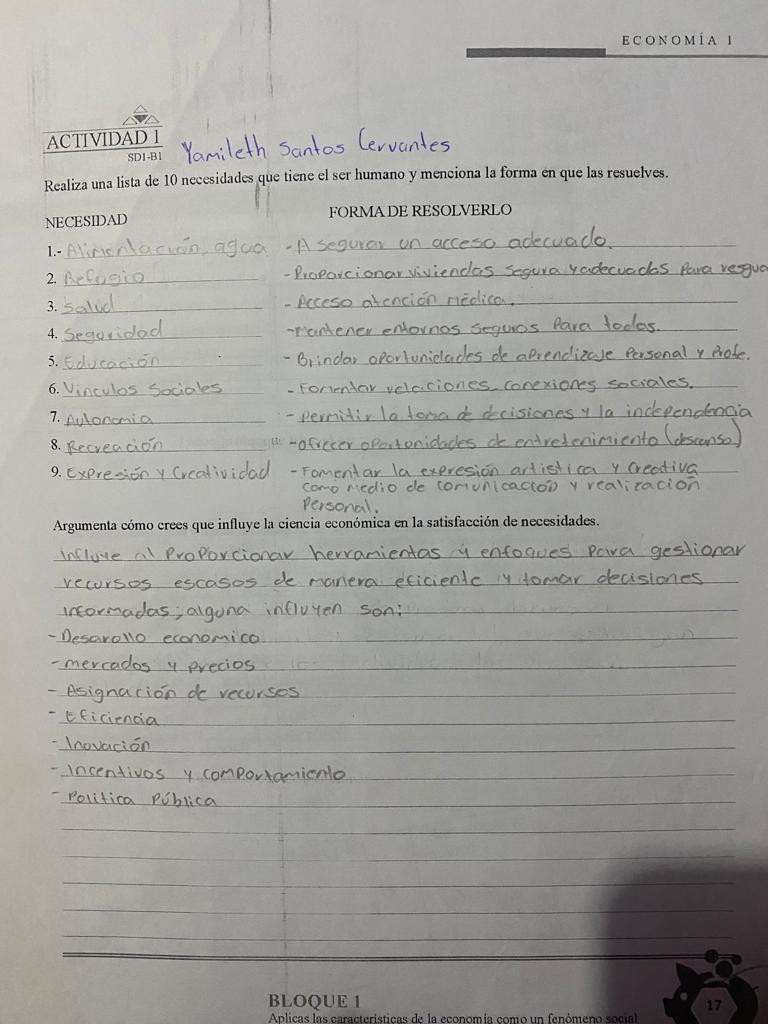 ECONOMÍA 1
ACTIVIDAD 1
SD1-B1
Yamileth Santos Cervantes
Realiza una lista de 10 necesidades que tiene el ser humano y menciona la forma en que las resuelves.
NECESIDAD FORMA DE RESOLVERLO
1.- Alimentación, agua - Asegurar un acceso adecuado.
2. Refugio - Proporcionar viviendas segura y adecuadas para resgua
3. Salud - Acceso atención médica.
4. Seguridad - Mantener entornos seguros para todos.
5. Educación - Brindar oportunidades de aprendizaje personal y profe.
6. Vinculos Sociales - Fomentar relaciones, conexiones sociales.
7. Autonomia - permitir la toma de decisiones y la independencia
8. Recreación - ofrecer oportunidades de entretenimiento (descanso)
9. Expresión y Creatividad - Fomentar la expresión artistica y creativa
como medio de comunicación y realización
Personal.
Argumenta cómo crees que influye la ciencia económica en la satisfacción de necesidades.
Influye al proporcionar herramientas y enfoques para gestionar
recursos escasos de manera eficiente y tomar decisiones
informadas; alguna influyen son:
- Desarollo economico
- mercados y precios
- Asignación de recursos
- Eficiencia
- Inovación
- Incentivos y comportamiento
- Politica Pública
BLOQUE 1
Aplicas las características de la economía como un fenómeno social
17